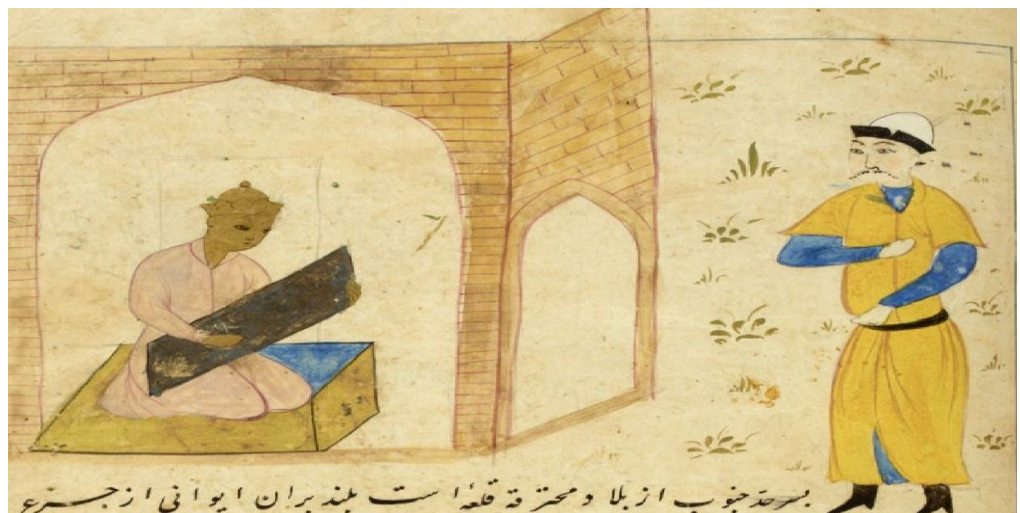 بسرحد جنوب از بلاد محترقة قلعهٔ است بلند بران ایوانی از جزع